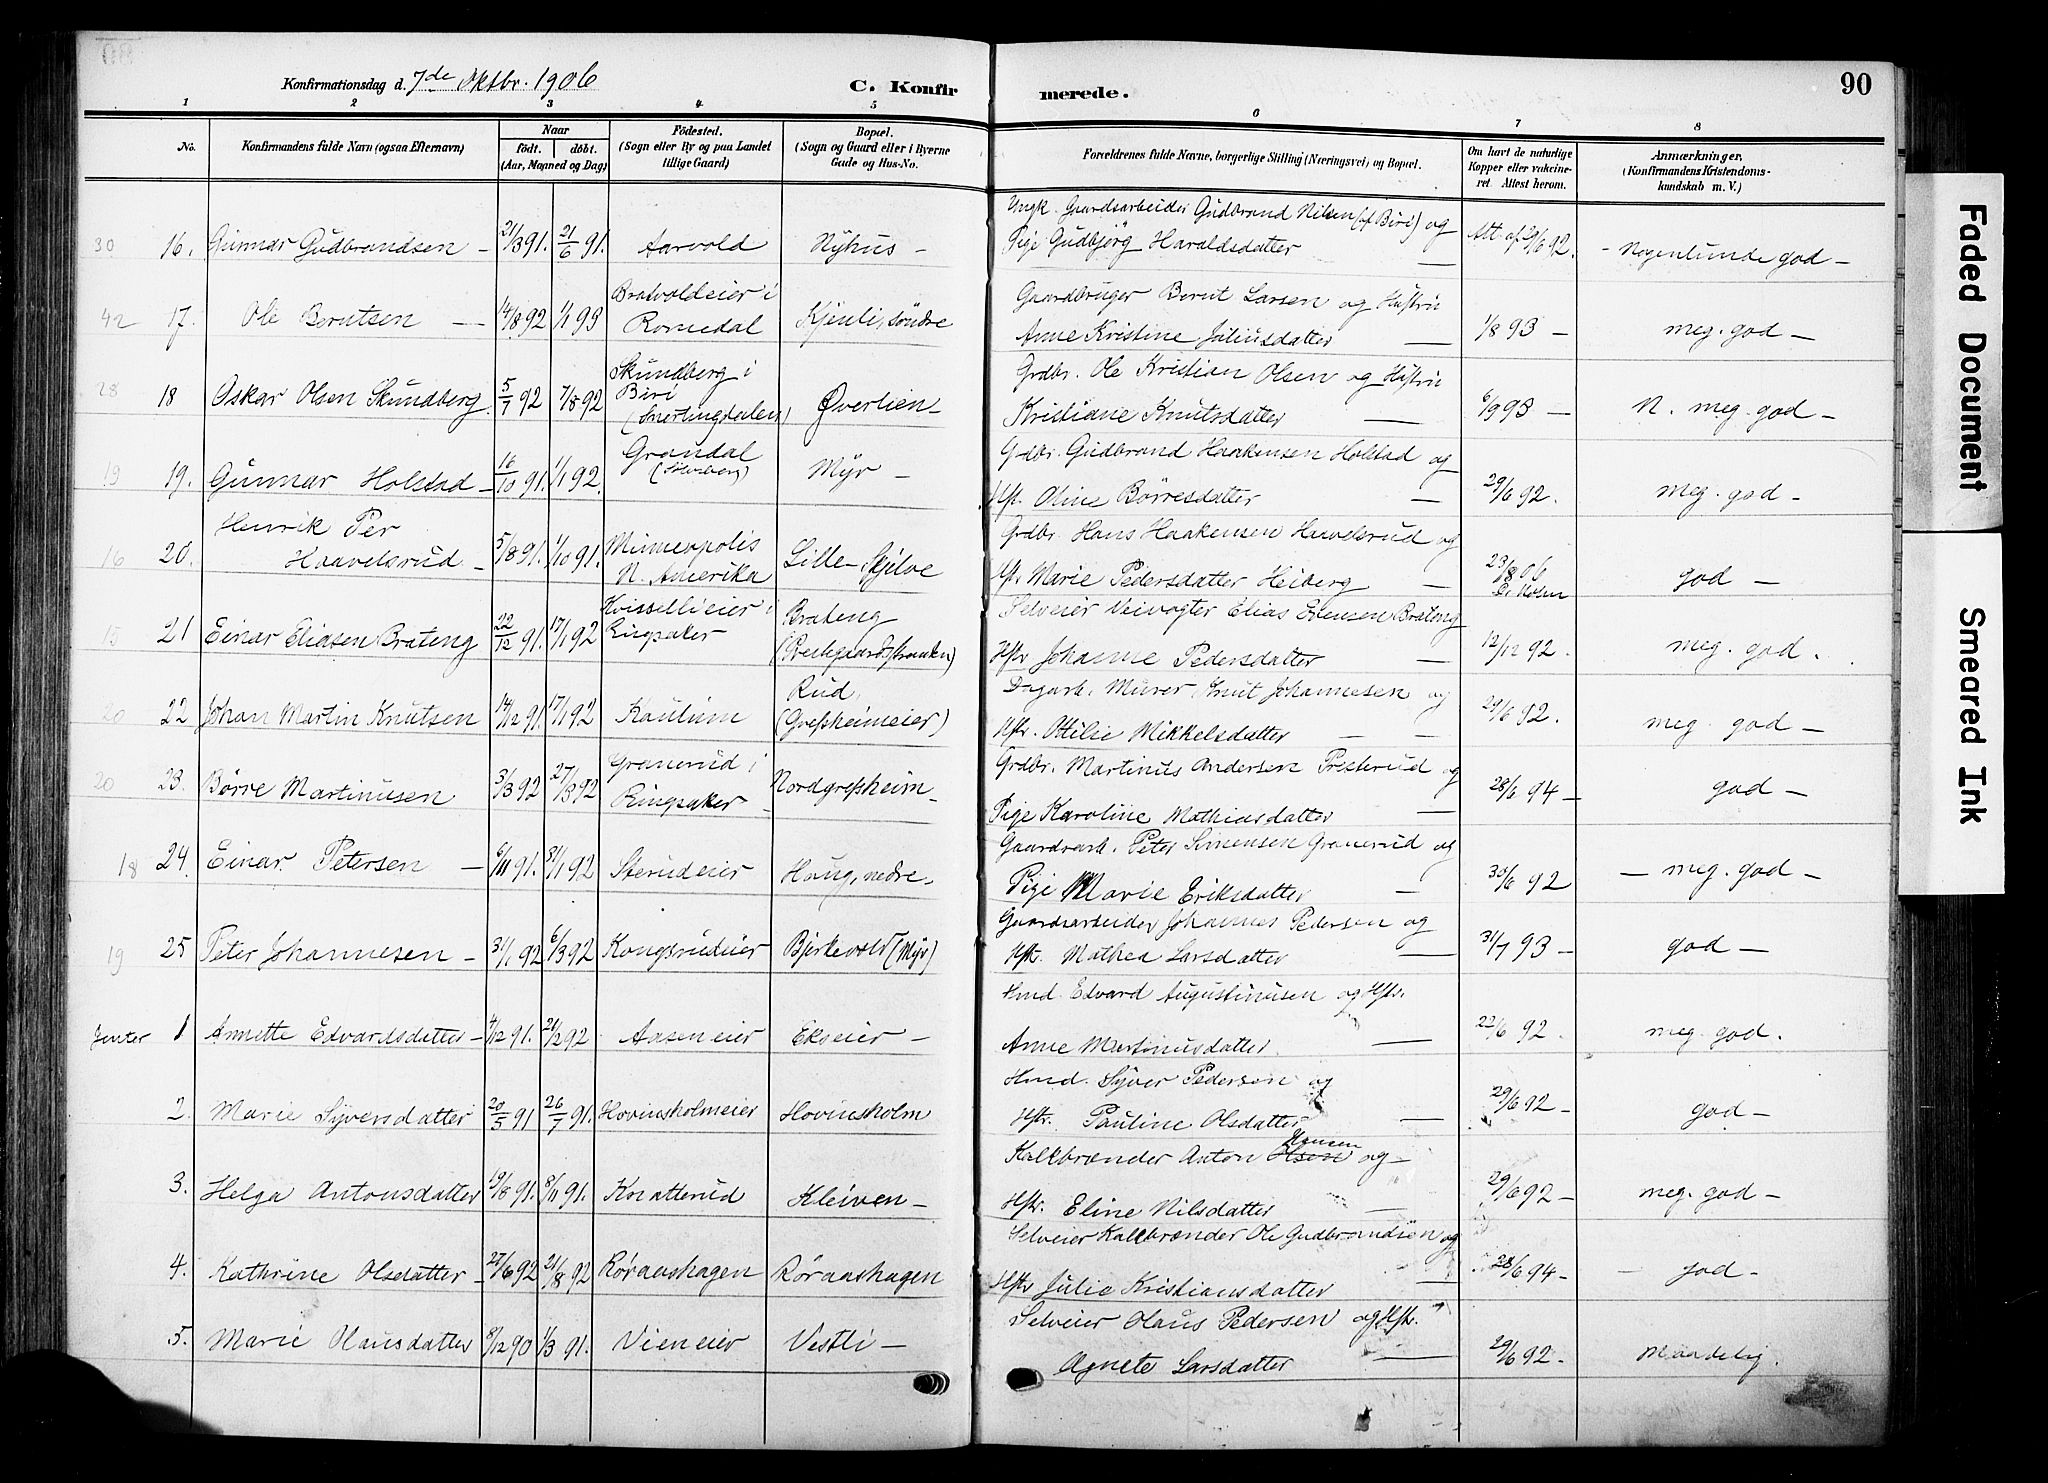 Konfirmationsdag d. 7de Oktbr. 1906
C. Konfirmerede.
90
1 2 3 4 5 6 7 8
No.
Konfirmandens fulde Navn (ogsaa Efternavn)
Naar
født. døbt.
(Aar, Maaned og Dag)
Fødested.
(Sogn eller By og paa Landet
tillige Gaard)
Bopæl.
(Sogn og Gaard eller i Byerne
Gade og Hus-No.
Forældrenes fulde Navne, borgerlige Stilling (Næringsvei) og Bopæl.
Om havt de naturlige
Kopper eller vakcine-
ret. Attest herom.
Anmærkninger.
(Konfirmandens Kristendoms-
kundskab m. V.)
30 16. Gunnar Gudbrandsen – 21/3 91. 21/6 91. Aarvold Nyhus –
Ungk. Gaardsarbeider Gudbrand Nilsen (af Biri) og
Pige Gudbjørg Haraldsdatter — Att. af 29/6 92. – Nogenlunde god –
42 17. Ole Berntsen — 14/8 92 1/1 93 Bratvoldeier i
Romedal Kjenli, søndre
Gaardbruger Bernt Larsen og Hustru
Anne Kristine Juliusdatter — 1/8 93 – meg. god –
28 18 Oskar Olsen Skundberg 5/7 92 7/8 92 Skundberg i
Biri
(Snertingdalen) Øverlien –
Grdbr. Ole Kristian Olsen og Hustru
Kristiane Knutsdatter — 6/9 93 — N. meg. god –
19 19. Gunnar Holstad – 16/10 91. 1/1 92. Grandal
Myr –
Grdbr. Gudbrand Haakensen Holstad og
Hst. Oline Børresdatter — 29/6 92. meg. god –
16 20. Henrik Per
Haavelsrud – 5/8 91. 1/10 91. Minneapolis
N. Amerika Lille-Skjelve
Grdbr. Hans Haakensen Haavelsrud og
Hst. Marie Pedersdatter Heiberg — 23/8 06
Dr. Holm god –
15 21 Einar Eliasen Brateng 22/12 91. 17/1 92 Kvissellieier i
Ringsaker Brateng
(Prestgaardsstranden)
Selveier Veivogter Elias Evensen Brateng
Hstr Johanne Pedersdatter — 12/12 92. meg. god.
20 22 Johan Martin Knutsen 14/12 91. 17/1 92 Kaulum Rud,
(Gresheimeier)
Dagarb. Murer Knut Johannesen og
Hstr. Ottilie Mikkelsdatter — — 29/6 92. meg. god –
20 23. Børre Martinusen 3/3 92 27/3 92 Granerud i
Ringsaker – Nordgresheim –
Grdbr. Martinus Andersen Presterud og
Pige Karoline Mathiasdatter — 28/6 94 – god –
18 24. Einar Petersen – 6/11 91. 31/1 92 Sterudeier Haug, nedre –
Gaardarb. Peter Simensen Granerud og
Pige Marie Eriksdatter — 30/6 92 – meg. god –
19 25 Peter Johannesen – 31/1 92 6/3 92 Kongsrudeier Bjerkevold (Myr)
Gaardsarbeider Johannes Pedersen og
Hstr. Mathea Larsdatter — 31/7 93 – god –
Jenter 1 Annette Edvardsdatter – 4/12 91. 21/2 92 Aaseneier Ekseier –
Hmd. Edvard Augustinusen og Hstr.
Anne Martinusdatter. — 22/6 92. meg. god.
2. Marie Syversdatter 20/5 91 26/7 91. Hovinsholmeier Hovinsholm
Hmd. Syver Pedersen og
Hstr. Pauline Olsdatter — 29/6 92 – god –
3. Helga Antonsdatter 19/8 91. 8/11 91. Knatterud Kleiven –
Hansen
Kalkbrænder Anton Olsen og –
Hstr. Eline Nilsdatter — 29/6 92 – meg. god –
4. Kathrine Olsdatter – 27/6 92 21/8 92 Røraashagen Røraashagen
Selveier Kalkbrænder Ole Gudbrandsen og
Hstr Julie Kristiansdatter — 28/6 94 – – god –
5. Marie Hansdatter 8/12 90 1/3 91. Vieneier Vestli –
Selveier Hans Pedersen og Hstr.
Agnete Larsdatter — 29/6 92 – Maadelig.
Faded Document
Smeared Ink